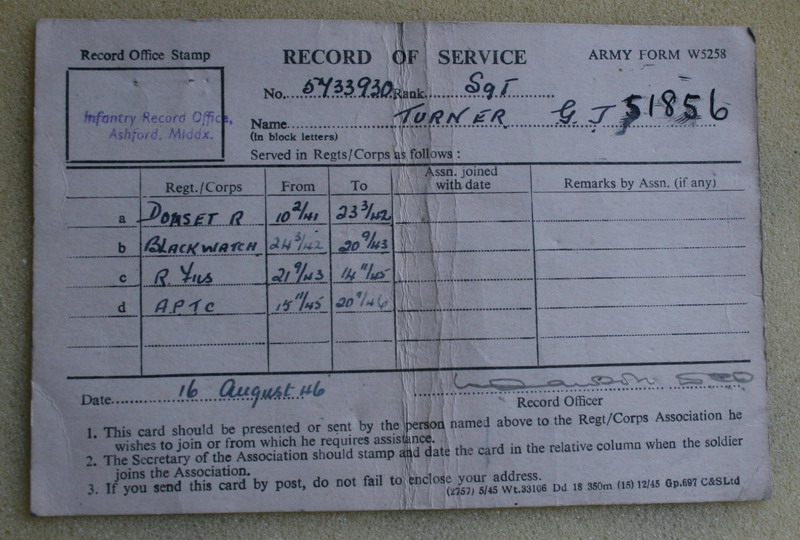 Record Office Stamp RECORD OF SERVICE ARMY FORM W5258
Infantry Record Office,
Ashford, Middx.
No. 5733930 Rank Sgt
Name TURNER G. J 51856
(In block letters)
Served in Regts/Corps as follows :
Regt./Corps From To Assn. joined with date Remarks by Assn. (if any)
a DORSET R 10 2/41 23 3/42
b BLACKWATCH 24 3/42 20 9/43
c R. Fus 21 9/43 14 11/45
d APTC 15 11/45
Date 16 August 46
Record Officer
1. This card should be presented or sent by the person named above to the Regt/Corps Association he
wishes to join or from which he requires assistance.
2. The Secretary of the Association should stamp and date the card in the relative column when the soldier
joins the Association.
3. If you send this card by post, do not fail to enclose your address.
(2757) 5/45 Wt.33106 Dd 18 350m (15) 12/45 Gp.697 C&SLtd